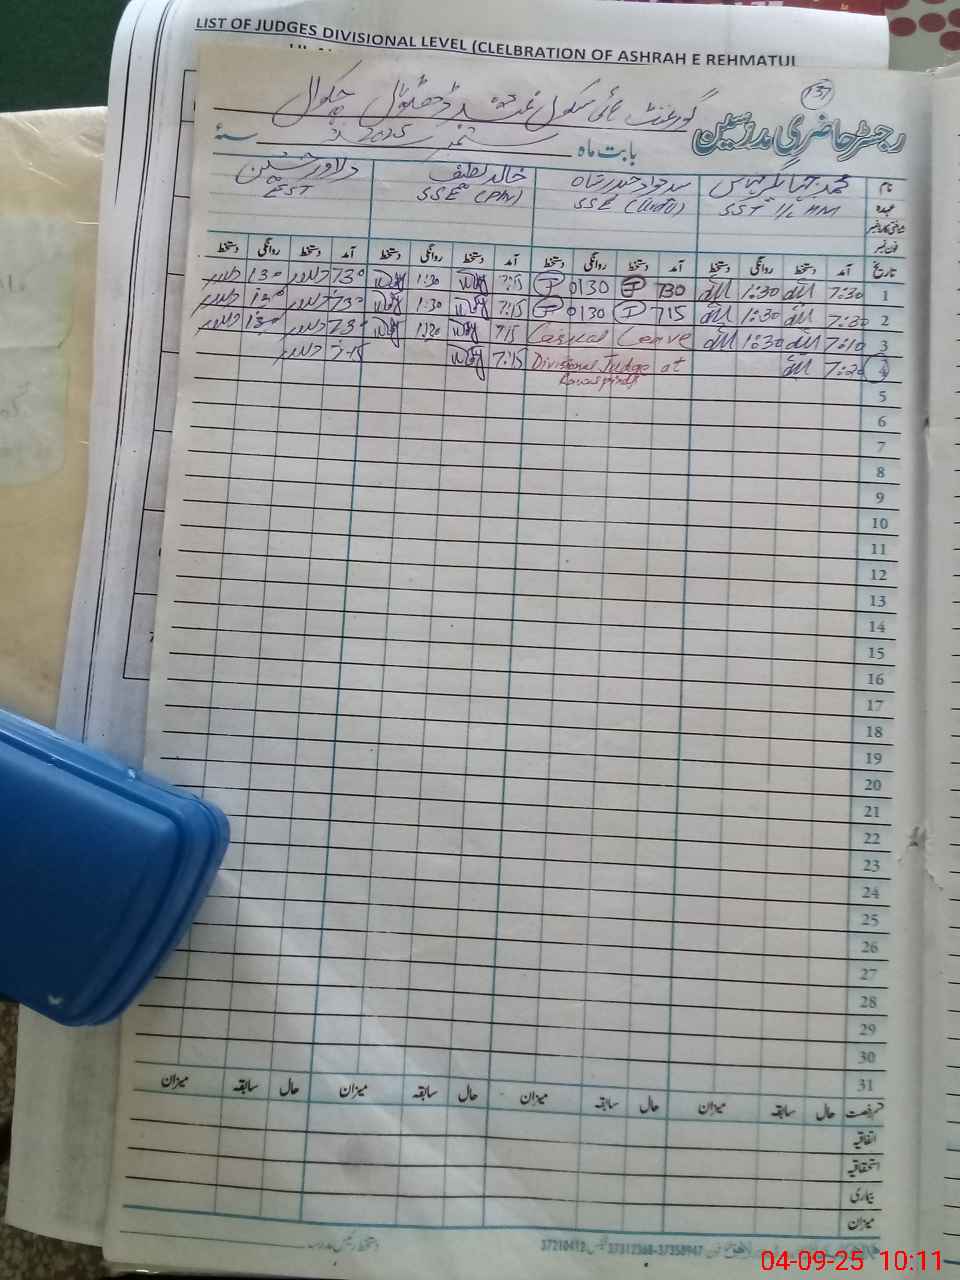 LIST OF JUDGES DIVISIONAL LEVEL (CLELBRATION OF ASHRAH E REHMATUL
137
رجسٹر حاضری مدرسین
گورنمنٹ ہائی سکول چکوال
بابت ماہ ستمبر 2025 سنہ
نام محمد سید جواد حیدر شاہ خالد لطیف دلاور حسین
عہدہ SST I/C HM SSE (Urdu) SSE (Phy) EST
شناختی کارڈ نمبر
فون نمبر
تاریخ آمد دستخط روانگی دستخط آمد دستخط روانگی دستخط آمد دستخط روانگی دستخط آمد دستخط روانگی دستخط
1 7:30 1:30 730 0130 7:15 1:30 730 130
2 7:30 1:30 715 0130 7:15 1:30 730 130
3 7:10 1:30 Casual Leave 715 1:30 730 130
4 7:20 Divisional Judge at 7:15 7-15
Rawalpindi
5
6
7
8
9
10
11
12
13
14
15
16
17
18
19
20
21
22
23
24
25
26
27
28
29
30
31
قسم رخصت حال سابقہ میزان حال سابقہ میزان حال سابقہ میزان حال سابقہ میزان
اتفاقیہ
استحقاقیہ
بیماری
میزان
37210412 37312368-37358947
04-09-25 10:11